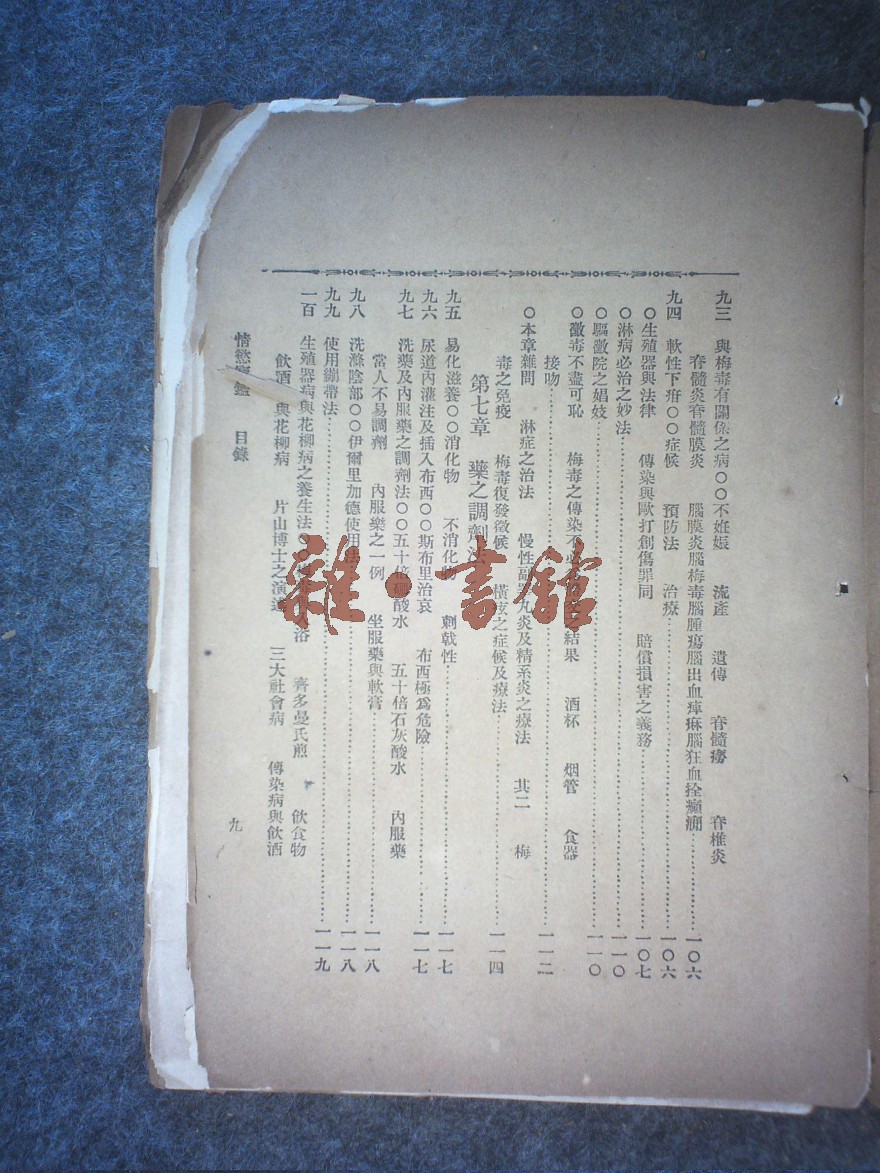 九三 與梅毒有關係之病〇〇不姙娠 流產 遺傳 脊髓癆 脊椎炎
脊髓炎脊髓膜炎 腦膜炎腦梅毒腦腫瘍腦出血痺麻腦狂血拴癲癇………一〇六
九四 軟性下疳〇〇症候 預防法 治療………一〇六
〇生殖器與法律 傳染與歐打創傷罪同 賠償損害之義務………一〇七
〇淋病必治之妙法………一一〇
〇驅黴院之娼妓………一一〇
〇黴毒不盡可恥 梅毒之傳染不必 結果 酒杯 烟管 食器
接吻………一一二
〇本章雜問 淋症之治法 慢性副睾丸炎及精系炎之療法 其二 梅
毒之免疫 梅毒復發徵候 橫痃之症候及療法………一一四
第七章 藥之調劑法
九五 易化滋養〇〇消化物 不消化物 刺戟性………一一七
九六 尿道內灌注及插入布西〇〇斯布里治哀 布西極爲危險………一一七
九七 洗藥及內服藥之調劑法〇〇五十倍硼酸水 五十倍石灰酸水 內服藥
當人不易調劑 內服藥之一例 坐服藥與軟膏………一一八
九八 洗滌陰部〇〇伊爾里加德使用法………一一八
九九 使用繃帶法………一一九
一百 生殖器病與花柳病之養生法 入浴 齊多曼氏煎 飲食物
飲酒 與花柳病 片山博士之演述 三大社會病 傳染病與飲酒
情慾寶鑑 目錄
九
雜·書館